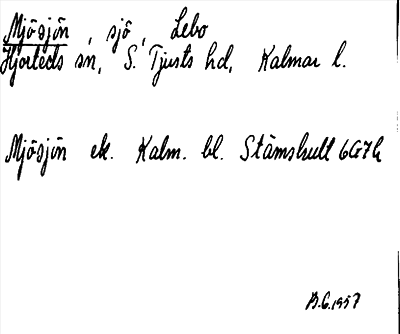 Mjösjön, sjö, Lebo
Hjorteds sn, S. Tjusts hd, Kalmar l.
Mjösjön ek. Kalm. bl. Stämshult 6G7h
B.G. 1957